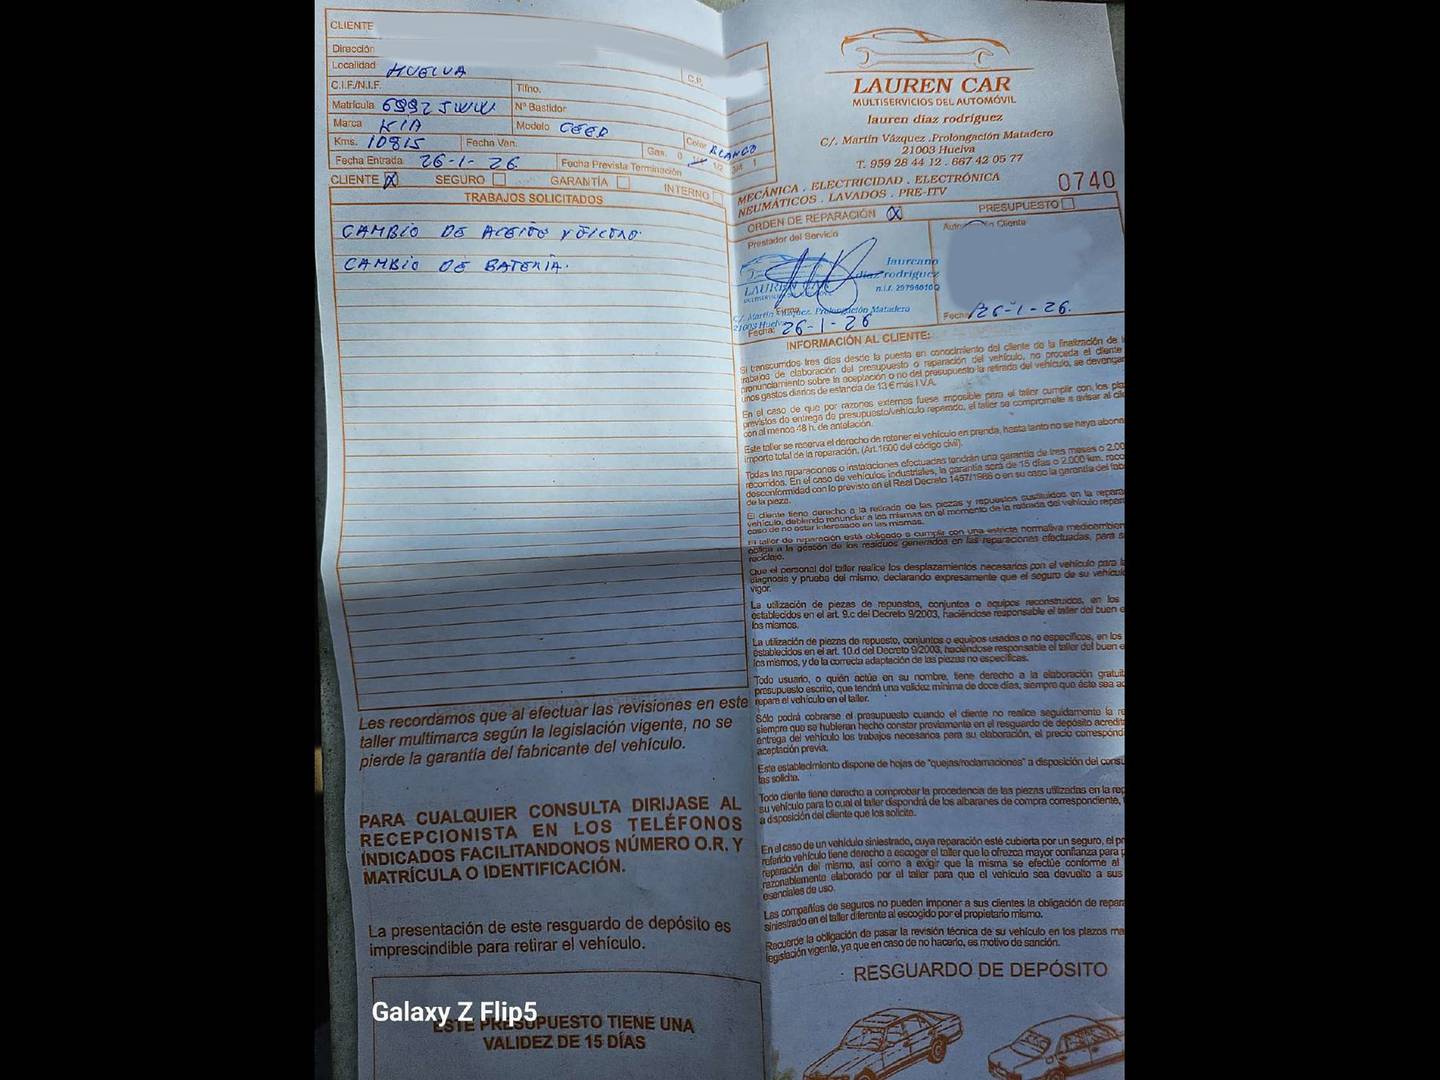 CLIENTE
Dirección
Localidad HUELVA C.P.
C.I.F./N.I.F. Tlfno.
Matrícula 6992 JWW Nº Bastidor
Marca KIA Modelo CEED
Kms. 10815 Fecha Ven. Gas. 0 1/4 1/2 3/4 1 Color BLANCO
Fecha Entrada 26-1-26 Fecha Prevista Terminación
CLIENTE X SEGURO GARANTÍA INTERNO
TRABAJOS SOLICITADOS
CAMBIO DE ACEITE Y FILTRO.
CAMBIO DE BATERIA.
Les recordamos que al efectuar las revisiones en este
taller multimarca según la legislación vigente, no se
pierde la garantía del fabricante del vehículo.
PARA CUALQUIER CONSULTA DIRIJASE AL
RECEPCIONISTA EN LOS TELÉFONOS
INDICADOS FACILITANDONOS NÚMERO O.R. Y
MATRÍCULA O IDENTIFICACIÓN.
La presentación de este resguardo de depósito es
imprescindible para retirar el vehículo.
Galaxy Z Flip5
ESTE PRESUPUESTO TIENE UNA
VALIDEZ DE 15 DÍAS
LAUREN CAR
MULTISERVICIOS DEL AUTOMÓVIL
lauren diaz rodríguez
C/. Martín Vázquez .Prolongación Matadero
21003 Huelva
T. 959 28 44 12 . 667 42 05 77
MECÁNICA . ELECTRICIDAD . ELECTRÓNICA
NEUMÁTICOS . LAVADOS . PRE-ITV
0740
ORDEN DE REPARACIÓN X PRESUPUESTO
Prestador del Servicio
Cliente
laureano
diaz rodríguez
LAUREN
C/. Martín Vázquez. Prolongación Matadero
21003 Huelva
Firma
Fecha: 26-1-26
Fecha: 26-1-26.
INFORMACIÓN AL CLIENTE:
Si transcurridos tres días desde la puesta en conocimiento del cliente de la finalización de
trabajos de elaboración del presupuesto o reparación del vehículo, no proceda el cliente
pronunciamiento sobre la aceptación o no del presupuesto la retirada del vehículo, se devengar
unos gastos diarios de estancia de 13 € más I.V.A.
En el caso de que por razones externas fuese imposible para el taller cumplir con los
previstos de entrega de presupuesto/vehículo reparado, el taller se compromete a avisar al
con al menos 48 h. de antelación.
Este taller se reserva el derecho de retener el vehículo en prenda, hasta tanto no se haya abona
importe total de la reparación. (Art.1600 del código civil).
Todas las reparaciones o instalaciones efectuadas tendrán una garantía de tres meses o 2.00
recorridos. En el caso de vehículos industriales, la garantía será de 15 días o 2.000 km.
desconformidad con lo previsto en el Real Decreto 1457/1986 o en su caso la garantía del
de la pieza.
El cliente tiene derecho a la retirada de las piezas y repuestos sustituidos en la repara
vehículo, debiendo renunciar a las mismas en el momento de la retirada del vehículo repara
caso de no estar interesado en las mismas.
El taller de reparación está obligado a cumplir con una estricta normativa medioambien
obliga a la gestión de los residuos generados en las reparaciones efectuadas, para
reciclaje.
Que el personal del taller realice los desplazamientos necesarios con el vehículo para
diagnosis y prueba del mismo, declarando expresamente que el seguro de su vehículo
vigor.
La utilización de piezas de repuestos, conjuntos o equipos reconstruidos, en los
establecidos en el art. 9.c del Decreto 9/2003, haciéndose responsable el taller del buen e
los mismos.
La utilización de piezas de repuesto, conjuntos o equipos usados o no específicos, en los
establecidos en el art. 10.d del Decreto 9/2003, haciéndose responsable el taller del buen e
los mismos, y de la correcta adaptación de las piezas no específicas.
Todo usuario, o quién actúe en su nombre, tiene derecho a la elaboración gratuit
presupuesto escrito, que tendrá una validez mínima de doce días, siempre que éste sea
repara el vehículo en el taller.
Sólo podrá cobrarse el presupuesto cuando el cliente no realice seguidamente la re
siempre que se hubieran hecho constar previamente en el resguardo de depósito acredit
entrega del vehículo los trabajos necesarios para su elaboración, el precio correspond
aceptación previa.
Este establecimiento dispone de hojas de "quejas/reclamaciones" a disposición del consu
las solicite.
Todo cliente tiene derecho a comprobar la procedencia de las piezas utilizadas en la rep
su vehículo para lo cual el taller dispondrá de los albaranes de compra correspondiente,
a disposición del cliente que los solicite.
En el caso de un vehículo siniestrado, cuya reparación esté cubierta por un seguro, el
referido vehículo tiene derecho a escoger el taller que la ofrezca mayor confianza para
reparación del mismo, así como a exigir que la misma se efectúe conforme al
razonablemente elaborado por el taller para que el vehículo sea devuelto a sus
esenciales de uso.
Las compañías de seguros no pueden imponer a sus clientes la obligación de repara
siniestrado en el taller diferente al escogido por el propietario mismo.
Recuerde la obligación de pasar la revisión técnica de su vehículo en los plazos ma
legislación vigente, ya que en caso de no hacerlo, es motivo de sanción.
RESGUARDO DE DEPÓSITO